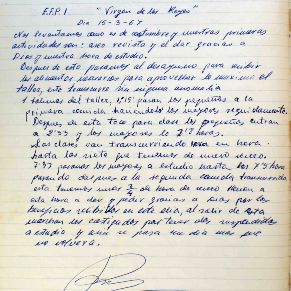 E.F.P.I "Virgen de los Reyes"
Dia 15-3-67
Nos levantamos como es de costumbre y nuestras primeras
actividades son: aseo revista y el dar gracias a
Dios y nuestra hora de estudio.
Despues de esto pasamos al desayuno para recibir
los alimentos necesarios para aprovechar lo maximo el
taller, este transcurre sin ninguna anomalia
1 salimos del taller, 1'15 pasan los pequeños a la
primera comida haciendolo los mayores seguidamente.
Despues de esto toca para clase los pequeños entran
a 2'33 y los mayores lo 3'3 horas.
Las clases van transcurriendo hora en hora
hasta las siete que tenemos de nuevo recreo.
7'33 pasando los mayores a estudio hasta los 8'3 hora
pasando despues a la segunda comida transcurrida
esta tenemos unos de hora de recreo
esta hora a dar y pedir gracias a Dios por los
beneficios recibidos en este dia, al salir de esta
marchan los castigados por tener ales suspendidas
a estudio y asi se pasa un dia mas que
no volvera.